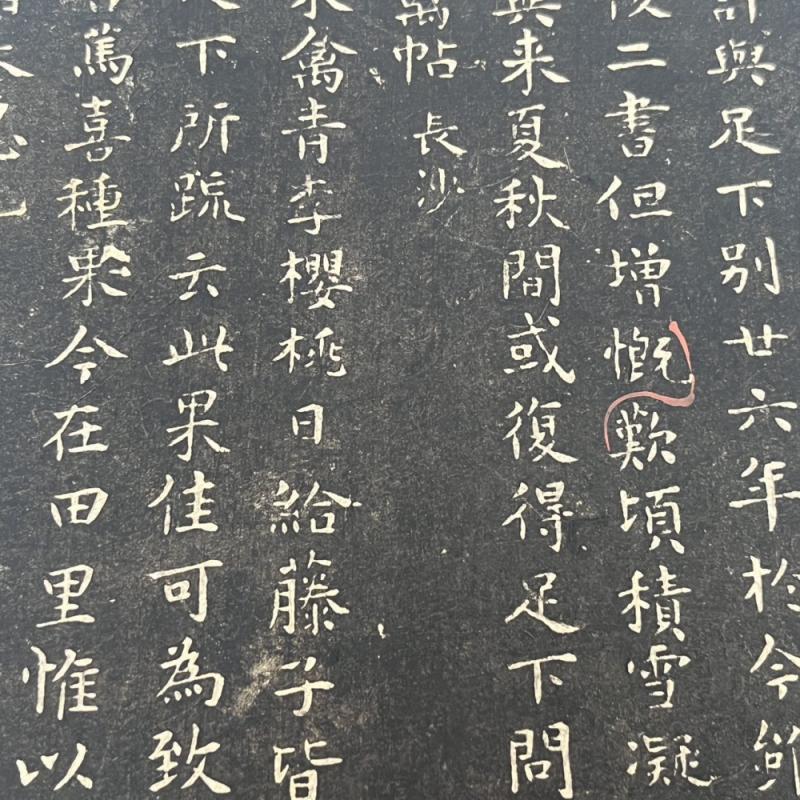 計與足下別廿六年於今
後二書但增慨歎頃積雪凝
来夏秋間或復得足下問
帖 長沙
禽青李櫻桃日給藤子皆
下所疏云此果佳可為致
篤喜種果今在田里惟以